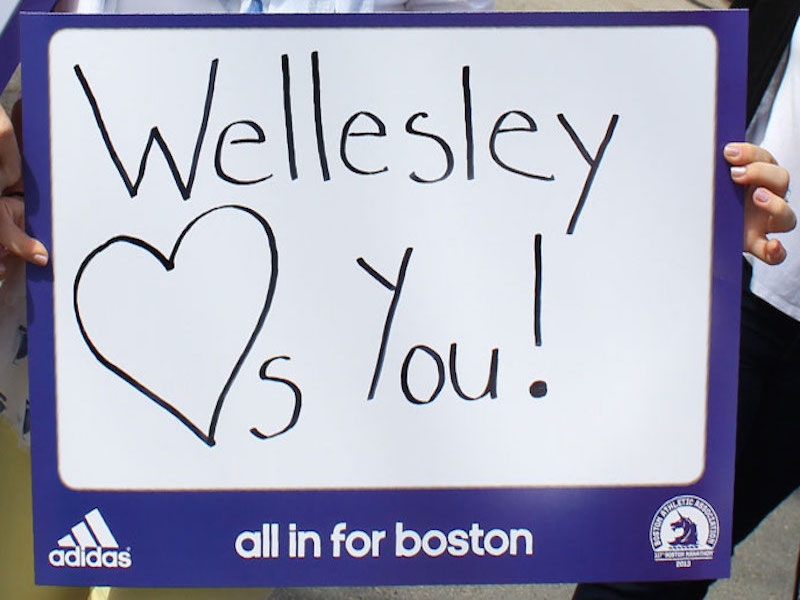 Wellesley
♥s You!
adidas
all in for boston
BOSTON ATHLETIC ASSOCIATION
117th BOSTON MARATHON
2013